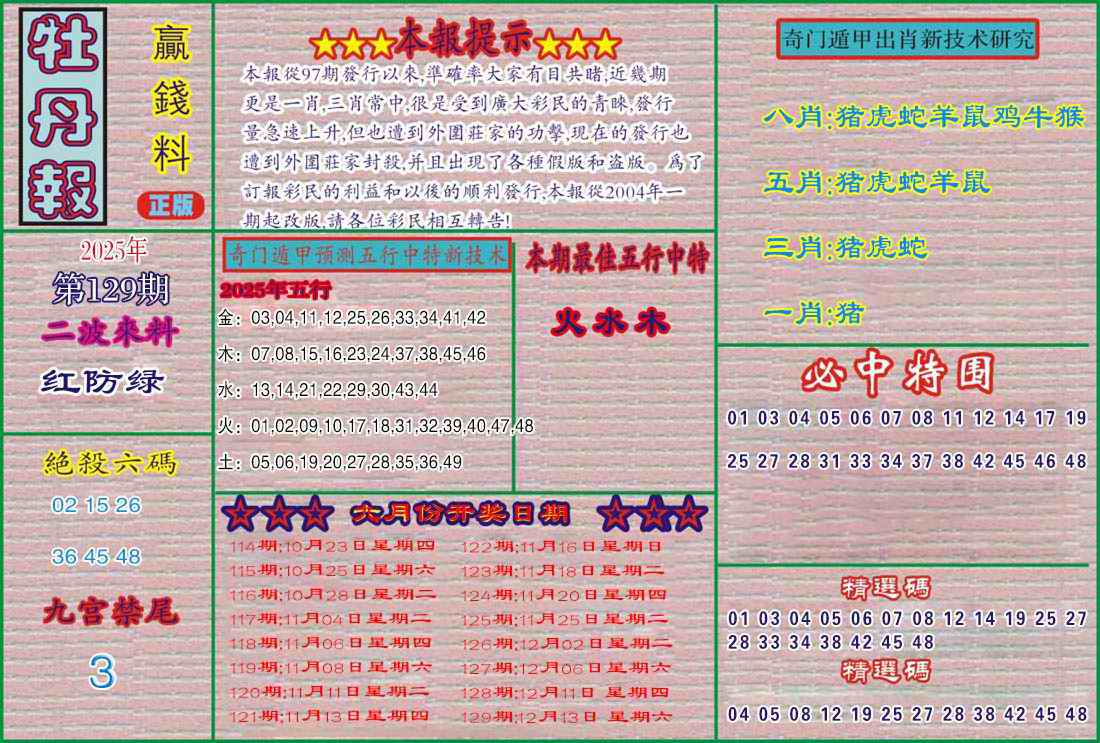 牡丹報
贏錢料
正版
2025年
第129期
二波來料
红防绿
絕殺六碼
02 15 26
36 45 48
九宫禁尾
3
★★★本報提示★★★
本報從97期發行以來,準確率大家有目共睹,近幾期
更是一肖,三肖常中,很是受到廣大彩民的青睞,發行
量急速上升,但也遭到外圍莊家的功擊,現在的發行也
遭到外圍莊家封殺,并且出現了各種假版和盗版。爲了
訂報彩民的利益和以後的順利發行,本報從2004年一
期起改版,請各位彩民相互轉告!
奇门遁甲预测五行中特新技术
2025年五行
金：03,04,11,12,25,26,33,34,41,42
木：07,08,15,16,23,24,37,38,45,46
水：13,14,21,22,29,30,43,44
火：01,02,09,10,17,18,31,32,39,40,47,48
土：05,06,19,20,27,28,35,36,49
本期最佳五行中特
火 水 木
☆☆☆ 六月份开奖日期 ☆☆☆
114期:10月23日星期四
115期:10月25日星期六
116期:10月28日星期二
117期:11月04日星期二
118期:11月06日星期四
119期:11月08日星期六
120期:11月11日星期二
121期:11月13日星期四
122期:11月16日星期日
123期:11月18日星期二
124期:11月20日星期四
125期:11月25日星期二
126期:12月02日星期二
127期:12月06日星期六
128期:12月11日 星期四
129期:12月13日 星期六
奇门遁甲出肖新技术研究
八肖:猪虎蛇羊鼠鸡牛猴
五肖:猪虎蛇羊鼠
三肖:猪虎蛇
一肖:猪
必中特围
01 03 04 05 06 07 08 11 12 14 17 19
25 27 28 31 33 34 37 38 42 45 46 48
精選碼
01 03 04 05 06 07 08 12 14 19 25 27
28 33 34 38 42 45 48
精選碼
04 05 08 12 19 25 27 28 38 42 45 48